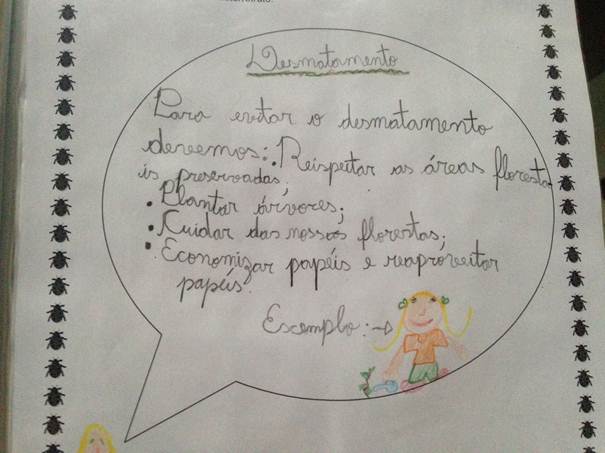 Desmatamento
Para evitar o desmatamento
deveemos: • Reispeitar as áreas floresta
is preservadas;
• Plantar árvores;
• Cuidar das nossas florestas;
• Economizar papéis e reaproveitar
papéis.
Escemplo: →